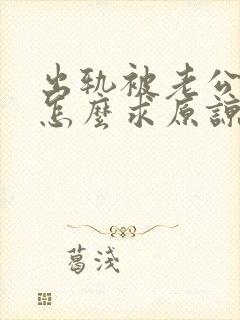 出轨被老公
怎麼求原諒
葛浅